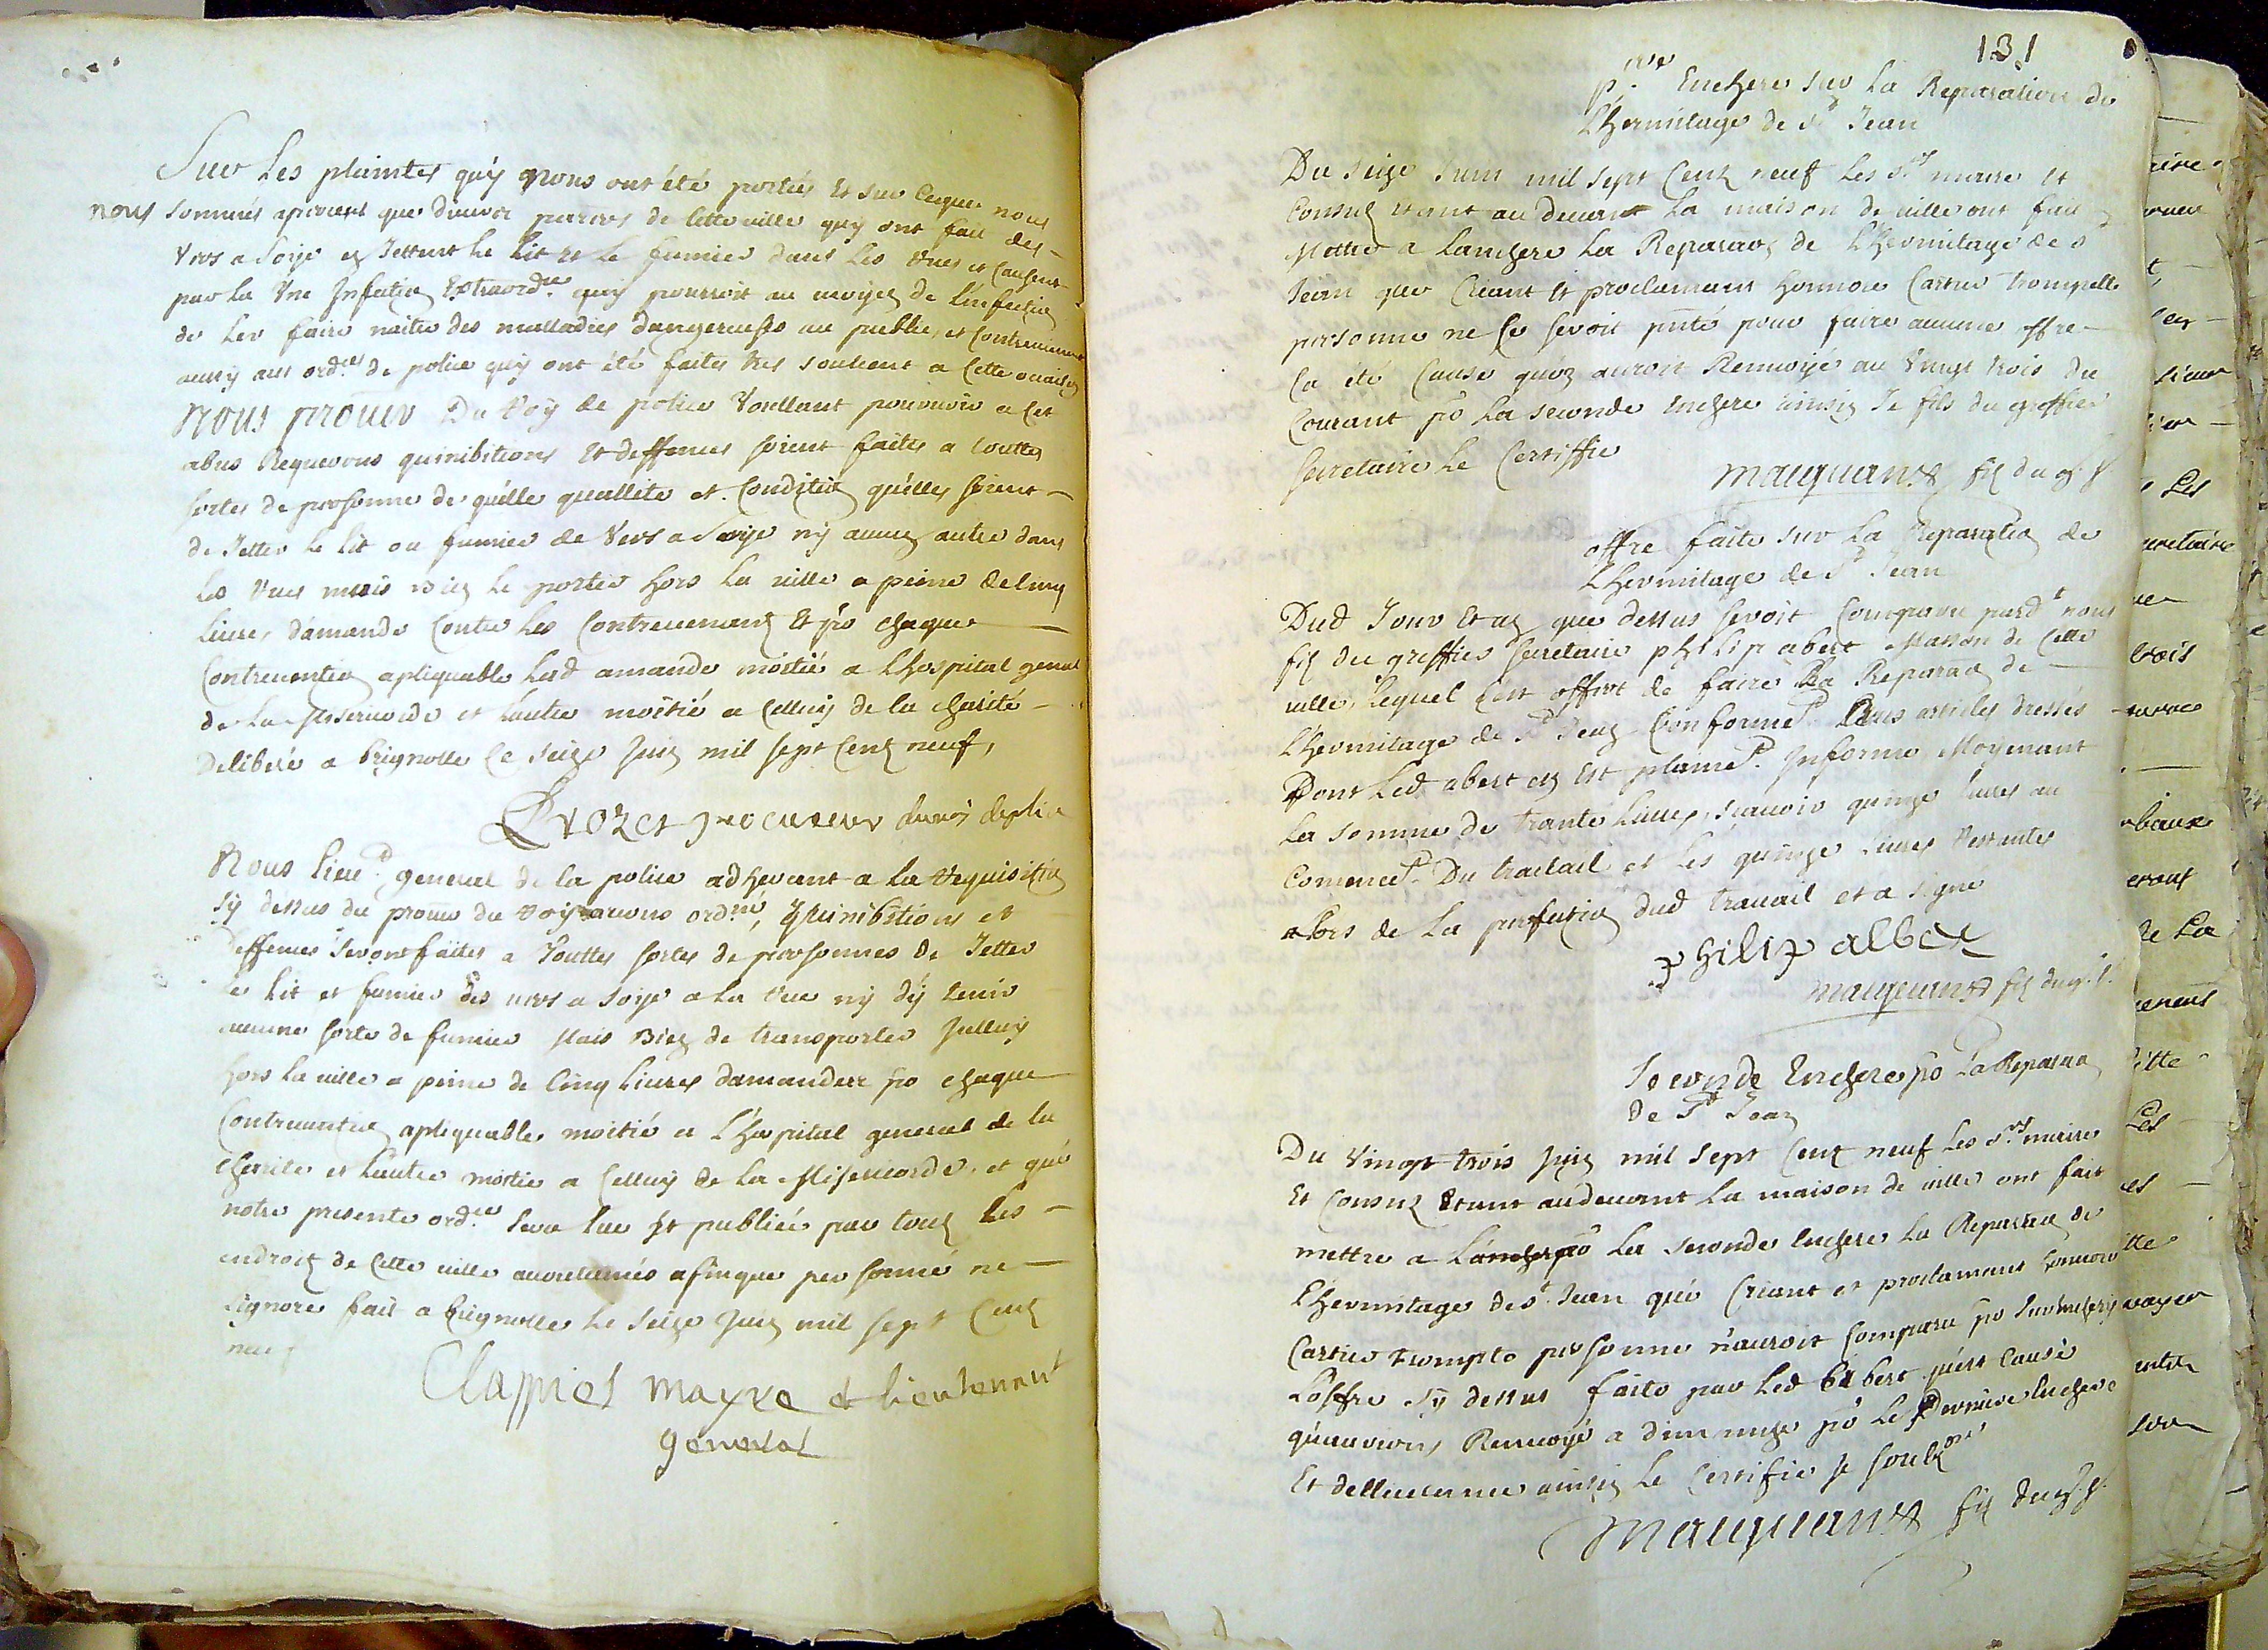 Sur les plaintes quy nous ont été portées Et sur ceque nous
nous sommes apercus que divers particuliers de cette ville quy ont fait des
vers a soye en Jettent le lit et le fumier dans les rues et causent
par la une Infection Extraord.re quy pourroit au moyen de l'infection
de l'er faire naitre des malladies dangereuses au public, et contreviennent
aussy aux ord.ces de police quy ont été faites tres souvent a cette occasion
nous procur Du Roy de police Voullant pourvoir a cet
abus Requerons quinibitions Et deffences soient faites a touttes
sortes de personne de quelle quallite et condition quelles soient
de Jetter le lit ou fumier de Vers a Soye ny aucun autre dans
les rues mais bien le porter hors la ville a peine de cinq
livres d'amande contre les contrevenants Et po chaque
contrevention apliquable lad amande moitié a l'hospital genral
de la Misericorde et l'autre moitié a celluy de la charité
Deliberé a brignolle ce seize Juin mil sept cens neuf,
procureur du roy de police
Nous lieut general de la police adherant a la requisition
sy dessus du procur du roy avons ord.né, quinibitions et
deffences seront faites a Touttes sortes de personnes de Jetter
le lit et fumier des vers a soye a la rue ny d'y tenir
aucune sorte de fumier Mais Bien de transporter Icelluy
hors la ville a peine de Cinq livres damande po chaque
contrevention apliquable moitié a L'hospital general de la
charité et l'autre moitié a celluy de la Misericorde, et que
notre presente ord.ce sera lue Et publiée par tous les
endroits de cette ville accoutumés afinque personne ne
l'ignore fait a brignolle le seize Juin mil sept cens
neuf
Clappiers mayre et lieutenant
general
131
p.re Enchere sur la Reparation de
L'hermitage de St Jean
Du seize Juin mil sept cens neuf les Srs maire et
consuls etant au devant la maison de ville ont fait
Mettre a lanchere la Reparaon de L'hermitage de St
Jean que criant Et proclamant honnore Cartier trompette
personne ne se seroit pnté pour faire aucune offre
ca été cause quon auroit Renvoyé au vingt trois du
courant po la seconde enchere ainsin Je fils du greffier
secretaire le certiffie
Mauquans fils du g. s
offre faite sur la Reparation de
L'hermitage de St Jean
Dud Jour Et an que dessus seroit comparu pard.t nous
fils du greffier secretaire philip abert Masson de cette
ville, lequel sest offert de faire La Reparaon de
L'hermitage de St Jean conformet aux articles dressés
Dont led abert en Est plainet Informe Moyenant
la somme de trante livres, scavoir quinze livres au
comencet Du travail et les quinze livres restantes
alors de la perfection dud travail et a signe
philip albert
mauquans fils du g. s.
Seconde Enchere po la Reparaon
de St Jean
Du Vingt trois Juin mil sept cens neuf les Srs maire
Et consuls Etant audevant la maison de ville ont fait
mettre a Lanchere po la seconde enchere la Reparaon de
L'hermitage de St Jean que criant et proclamant honnore
Cartier trompte personne n'auroit comparu po
L'offre sy dessus faite par led albert sest cause
quaurions Renvoyé a dimanche po le Derniere enchere
Et dellivrance ainsin le certifie Je soubz.né
Mauquans fils du g. s.